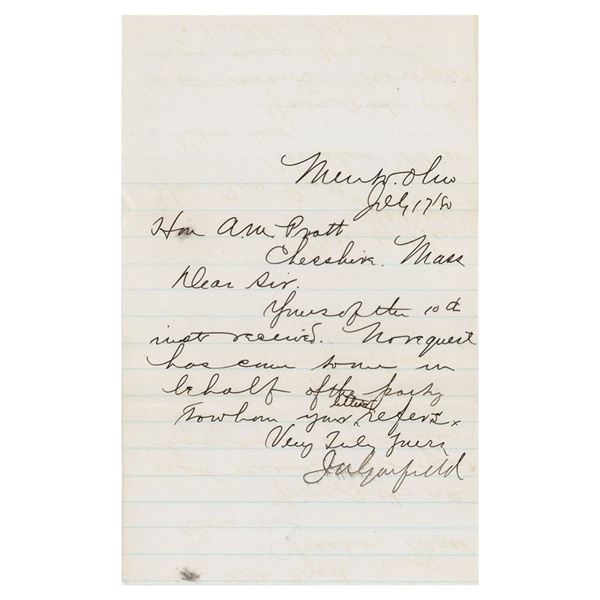 Mentor. Ohio
July 17/80
Hon A.M. Pratt
Chesshire. Mass
Dear Sir.
Yours of the 10th
inst received. No request
has come to me in
behalf of the party
To whom your letter refers.
Very Truly Yours
J A Garfield